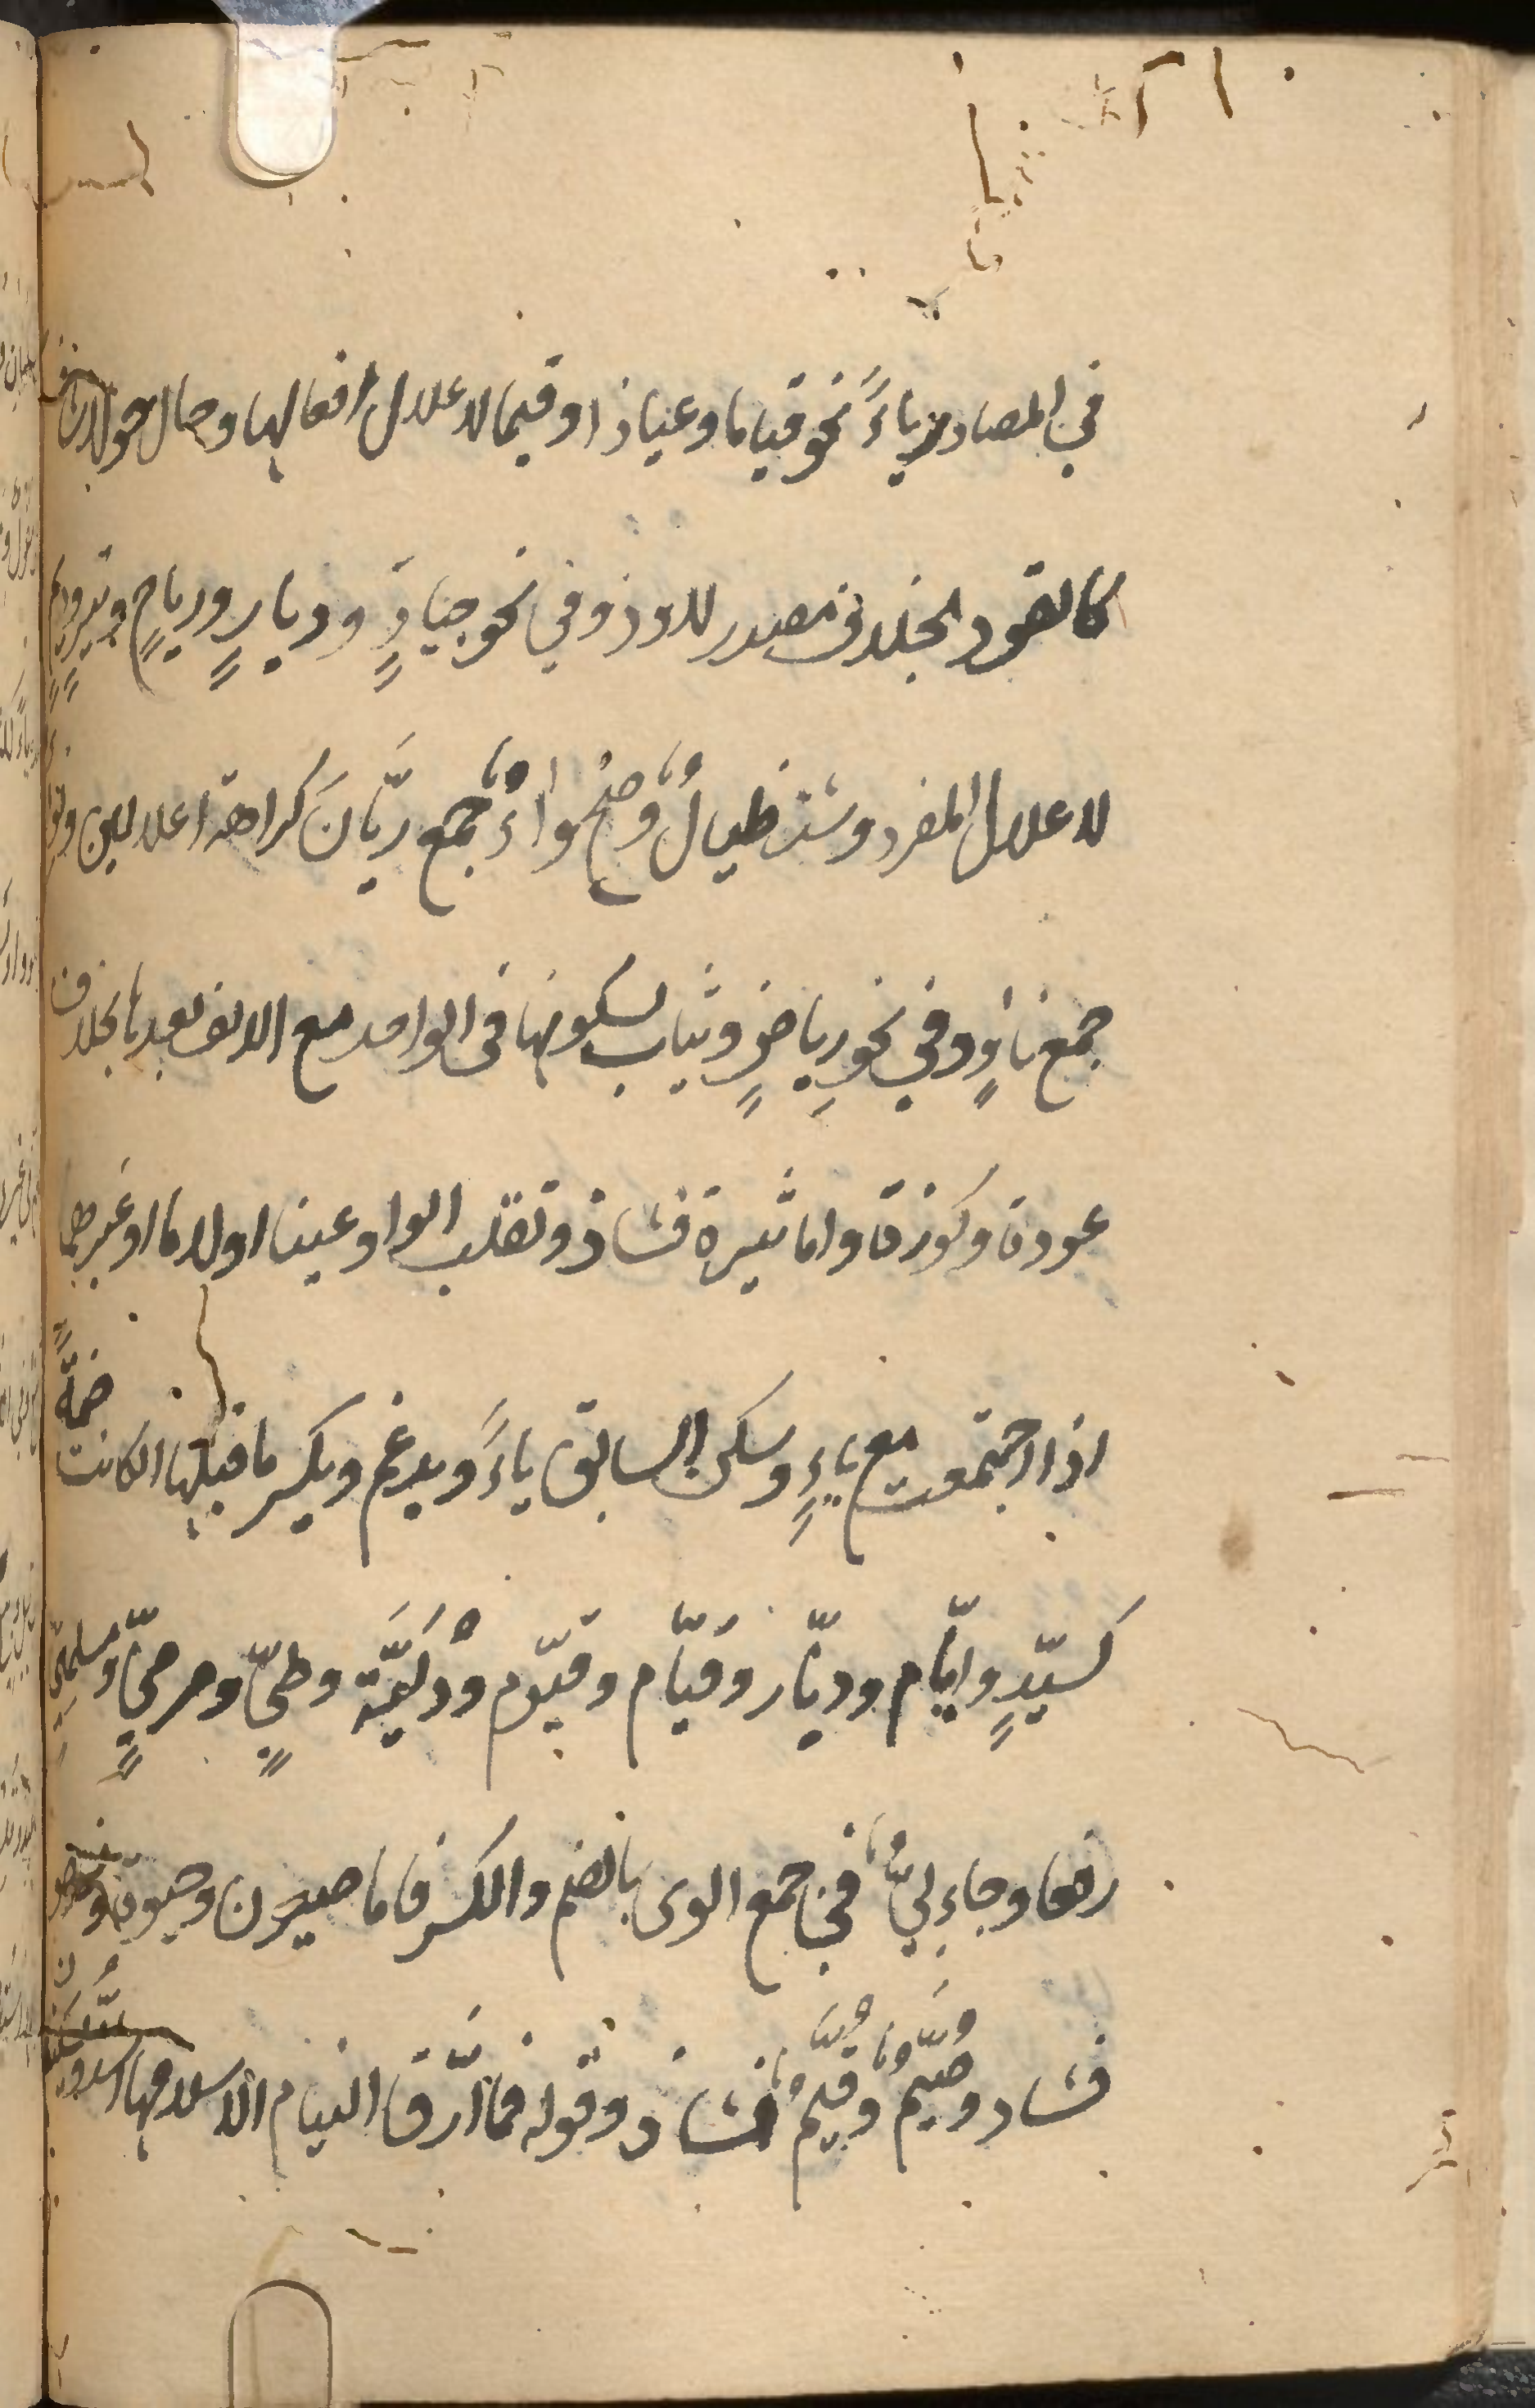 في المصادر ياءً نحو قياما وعياذا وقيما لاعلال افعالها وحال حولا شاذ
كالقود بخلاف مصدر لاوذ وفي نحو جيادٍ وديارٍ ورياحٍ وتيرٍ وديمٍ
لاعلال المفرد وشذ طيالٌ وصح رواءٌ جمع ريّانَ كراهة اعلالين ونواء
جمع ناوٍ وفي نحوِ رياضٍ وثياب لسكونها في الواحد مع الالف بعدها بخلاف
عودة وكوزة واما ثيرة فشاذ وتقلب الواو عينا او لاما او غيرهما
اذا اجتمعت مع ياءٍ وسكن السابق ياءً ويدغم ويكسر ما قبلها ان كانت ضمةً
كسيّدٍ وايّام وديّار وقيّام وقيّوم ودُلَيَّة وطيٍّ ومرميٍّ ومسلميَّ
رفعا وجاء لِيٌّ في جمع الوى بالضم والكسر فاما ضيون وحيوة ونهو
فشاذ وصيّم وقيّم شاذ وقوله فما أرّق النيام الا سلامها اشذ